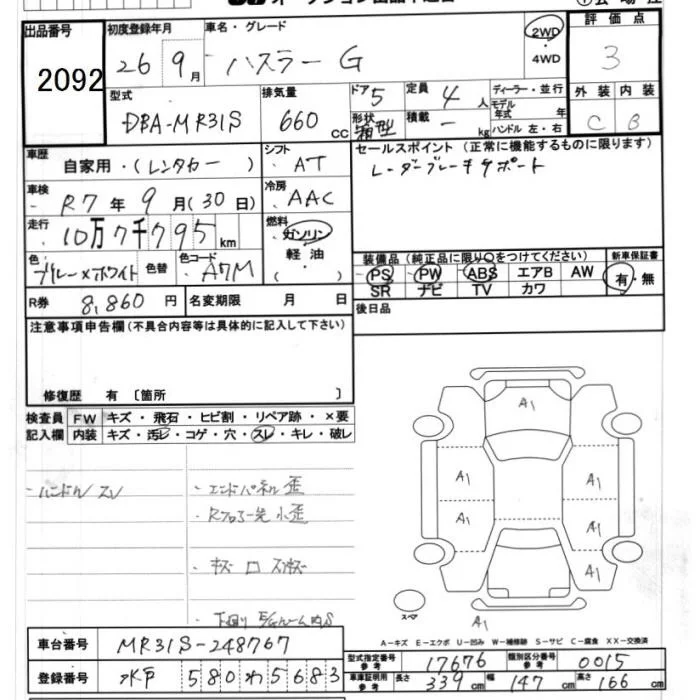 出品番号
2092
初度登録年月
26 9月
車名・グレード
ハスラー G
2WD
・
4WD
評価点
3
型式
DBA-MR31S
排気量
660 CC
ドア 5
形状 箱型
定員 4人
積載 － kg
ディーラー・並行
モデル年式 年
ハンドル 左・右
外装 内装
C B
車歴
自家用・(レンタカー)
シフト
AT
セールスポイント (正常に機能するものに限ります)
レーダーブレーキサポート
車検
R7年 9月(30日)
冷房
AAC
走行
10万7千795km
燃料
ガソリン
軽油
( )
色
ブルー×ホワイト
色替
色コード
A7M
装備品 (純正品に限り○をつけてください)
PS PW ABS エアB AW
SR ナビ TV カワ
新車保証書
有・無
R券 8,860円
名変期限 月 日
後日品
注意事項申告欄(不具合内容等は具体的に記入して下さい)
修復歴 有 〔箇所 〕
検査員 FW キズ・飛石・ヒビ割・リペア跡・×要
記入欄 内装 キズ・汚レ・コゲ・穴・スレ・キレ・破レ
・ハンドル スレ
・エンドパネル歪
・Rフロアー先 小歪
・キズ
A1
A1 A1
A1 A1
A1
A1
スペア
A-キズ E-エクボ U-凹み W-補修跡 S-サビ C-腐食 XX-交換済
車台番号 MR31S-248767
登録番号 水戸 580わ5683
型式指定番号 参考 17676
類別区分番号 参考 0015
車庫証明用 参考 長さ 339cm 幅 147cm 高さ 166cm